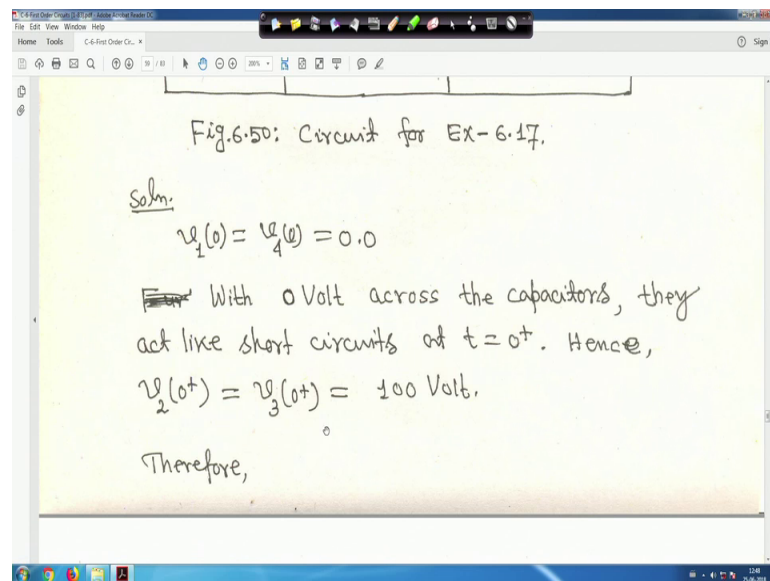 C-6-First Order Circuits (1-83).pdf - Adobe Acrobat Reader DC
File Edit View Window Help
Home Tools C-6-First Order Cir... × Sign
59 / 83 200%
Fig.6.50: Circuit for EX-6.17.
Soln.
v₁(0) = v₄(0) = 0.0
With 0 Volt across the capacitors, they
act like short circuits at t = 0⁺. Hence,
v₂(0⁺) = v₃(0⁺) = 100 Volt.
Therefore,
12:48